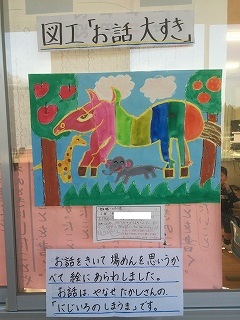 図工「お話 大すき」
お話をきいて 場めんを思いうか
べて 絵にあらわしました。
お話は、やなせ たかしさんの
「にじいろの しまうま」です。